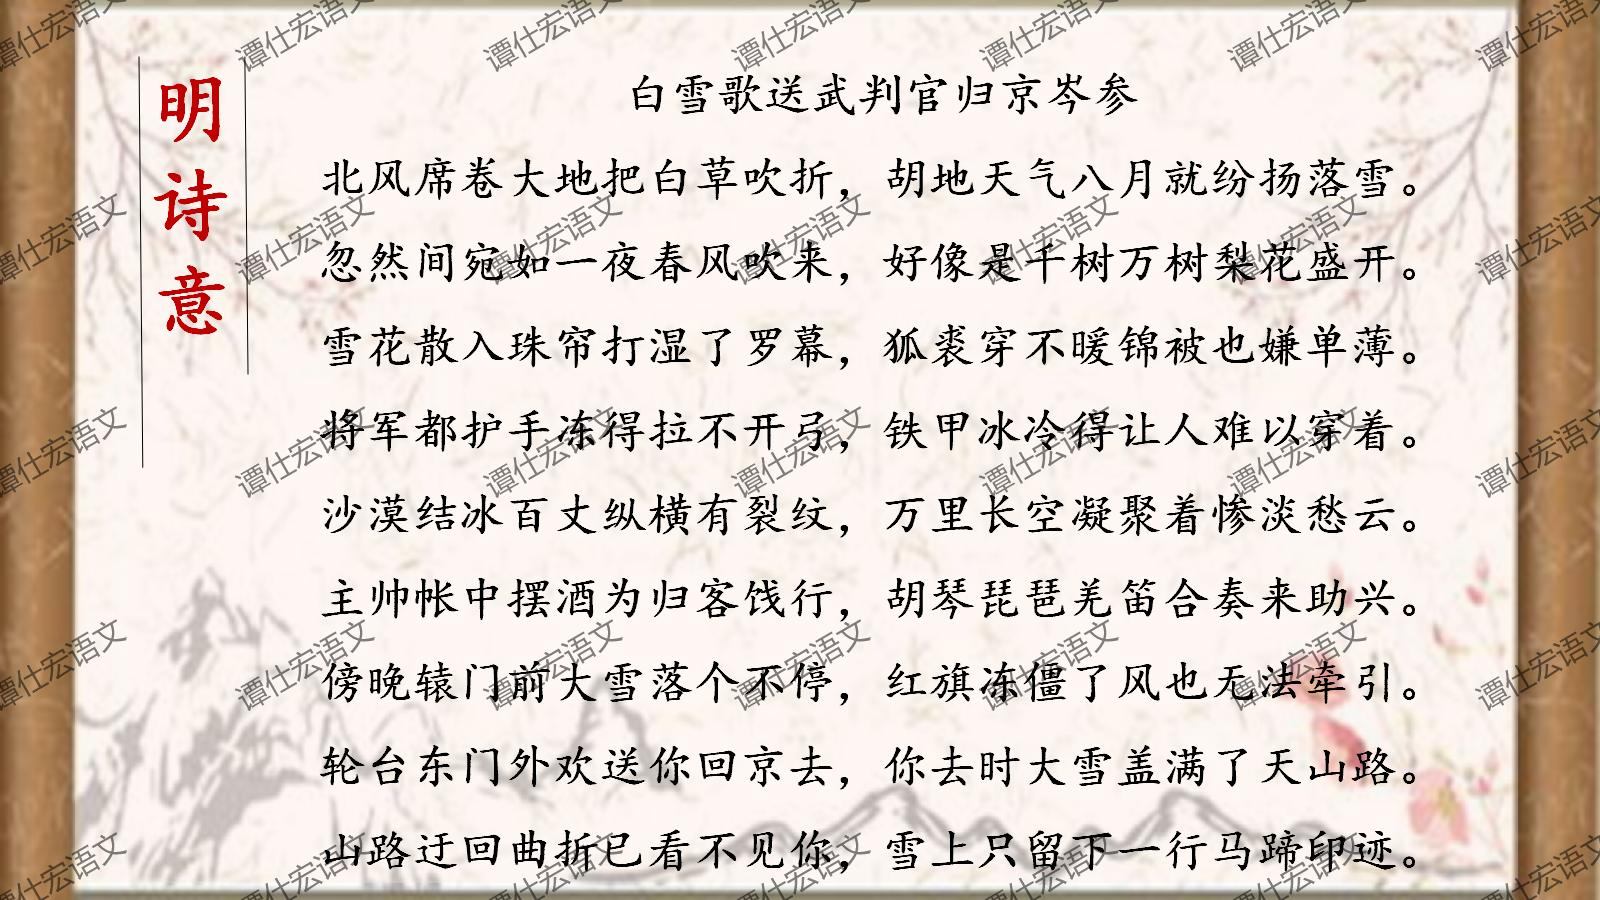 明诗意
白雪歌送武判官归京岑参
北风席卷大地把白草吹折，胡地天气八月就纷扬落雪。
忽然间宛如一夜春风吹来，好像是千树万树梨花盛开。
雪花散入珠帘打湿了罗幕，狐裘穿不暖锦被也嫌单薄。
将军都护手冻得拉不开弓，铁甲冰冷得让人难以穿着。
沙漠结冰百丈纵横有裂纹，万里长空凝聚着惨淡愁云。
主帅帐中摆酒为归客饯行，胡琴琵琶羌笛合奏来助兴。
傍晚辕门前大雪落个不停，红旗冻僵了风也无法牵引。
轮台东门外欢送你回京去，你去时大雪盖满了天山路。
山路迂回曲折已看不见你，雪上只留下一行马蹄印迹。
谭仕宏语文